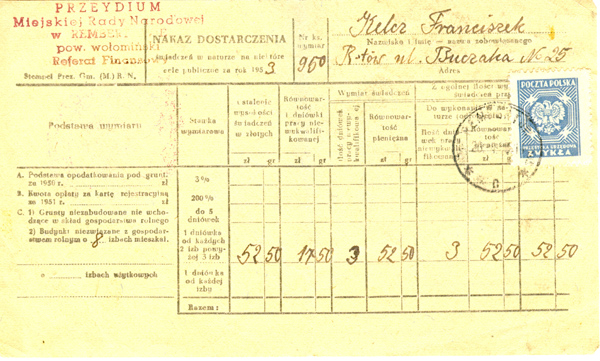 PREZYDIUM
Miejskiej Rady Narodowej
w REMBERT
pow. wołomiński
Referat Finansowy
Stempel Prez. Gm. (M.) R. N.
NAKAZ DOSTARCZENIA
świadczeń w naturze na niektóre
cele publiczne za rok 1953
Nr ks. wymiar
960
Kelcz Franciszek
Nazwisko i imię — nazwa zobowiązanego
R-tów ul. Buczka No 25
Adres
POCZTA POLSKA
ZWYKŁA
Podstawa wymiaru
Stawka wymiarowa
Ustalenie wysokości świadczeń w złotych
zł gr
Równowartość 1 dniówki pracy niewykwalifikowanej
zł gr
Wymiar świadczeń
Ilość dniówek pracy niewykwalifikowanej
Równowartość pieniężna
zł gr
Z ogólnej ilości
świadczeń
Do wykonania w naturze
Ilość dniówek pracy niewykwalifikowanej
Równowartość pieniężna
zł gr
A. Podstawa opodatkowania pod. grunt. za 1950 r.
3 %
B. Kwota opłaty za kartę rejestracyjną za 1951 r.
200 %
C. 1) Grunty niezabudowane nie wchodzące w skład gospodarstwa rolnego
do 5 dniówek
2) Budynki niezwiązane z gospodarstwem rolnym o 8 izbach mieszkal.
1 dniówka od każdych 2 izb powyżej 3 izb
52 50 17 50 3 52 50 3 52 50 52 50
o izbach użytkowych
1 dniówka od każdej izby
Razem: